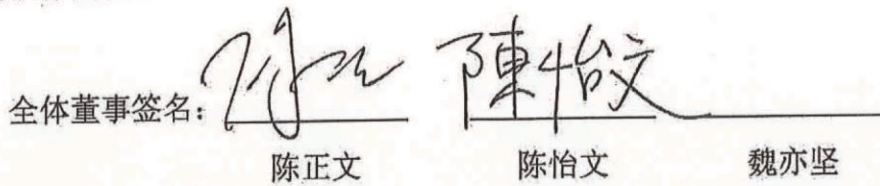 全体董事签名： 陳怡文
陈正文 陈怡文 魏亦坚